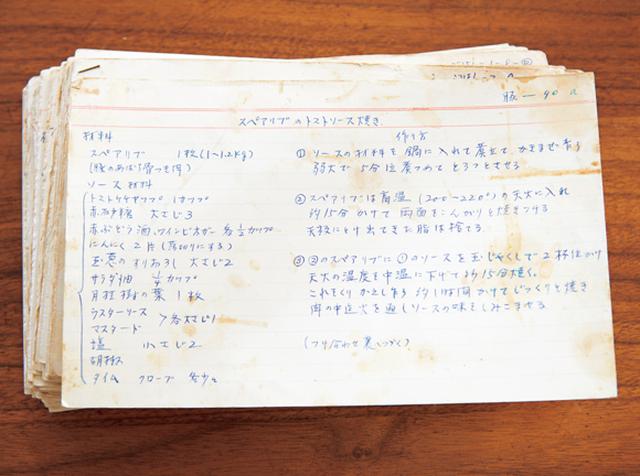 豚 — 90 a
スペアリブのトストソース焼き
材料
スペアリブ 1枚(1〜1.2kg)
(豚のあばら骨つき肉)
ソース材料
トマトケチャップ 1カップ
赤砂糖 大さじ3
赤ぶどう酒、ワインビネガー 各1/2カップ
にんにく 2片(薄切りにする)
玉葱のすりおろし 大さじ2
サラダ油 1/4カップ
月桂樹の葉 1枚
ウスターソース
マスタード
>各大さじ1
塩 小さじ2
胡椒
タイム クローブ 各少々
作り方
① ソースの材料を鍋に入れて煮立て、かきまぜ乍ら
弱火で5分位煮つめてとろっとさせる
② スペアリブは高温(200〜220°)の天火に入れ
約15分かけて両面をこんがりと焼きつける
天板にとけ出てきた脂は捨てる
③ ②のスペアリブに①のソースを玉じゃくしで2杯位かけ
天火の温度を中温に下げて約15分焼く。
これをくりかえし乍ら約1時間かけてじっくりと焼き
肉の中迄火を通しソースの味をしみこませる
(つけ合わせ裏へつづく)